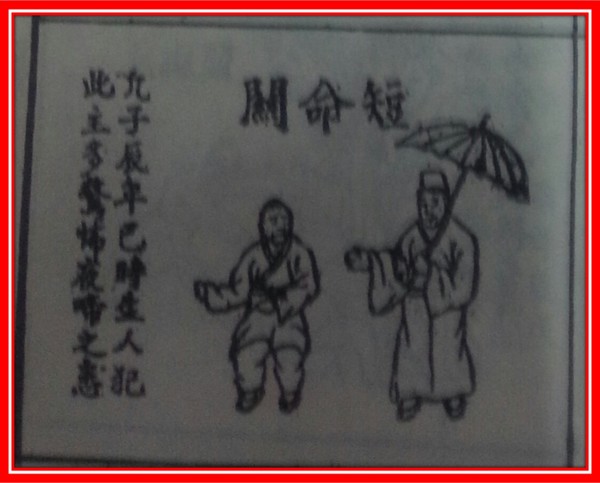 短命關
凢子辰年巳時生人犯
此主多驚怖夜啼之患